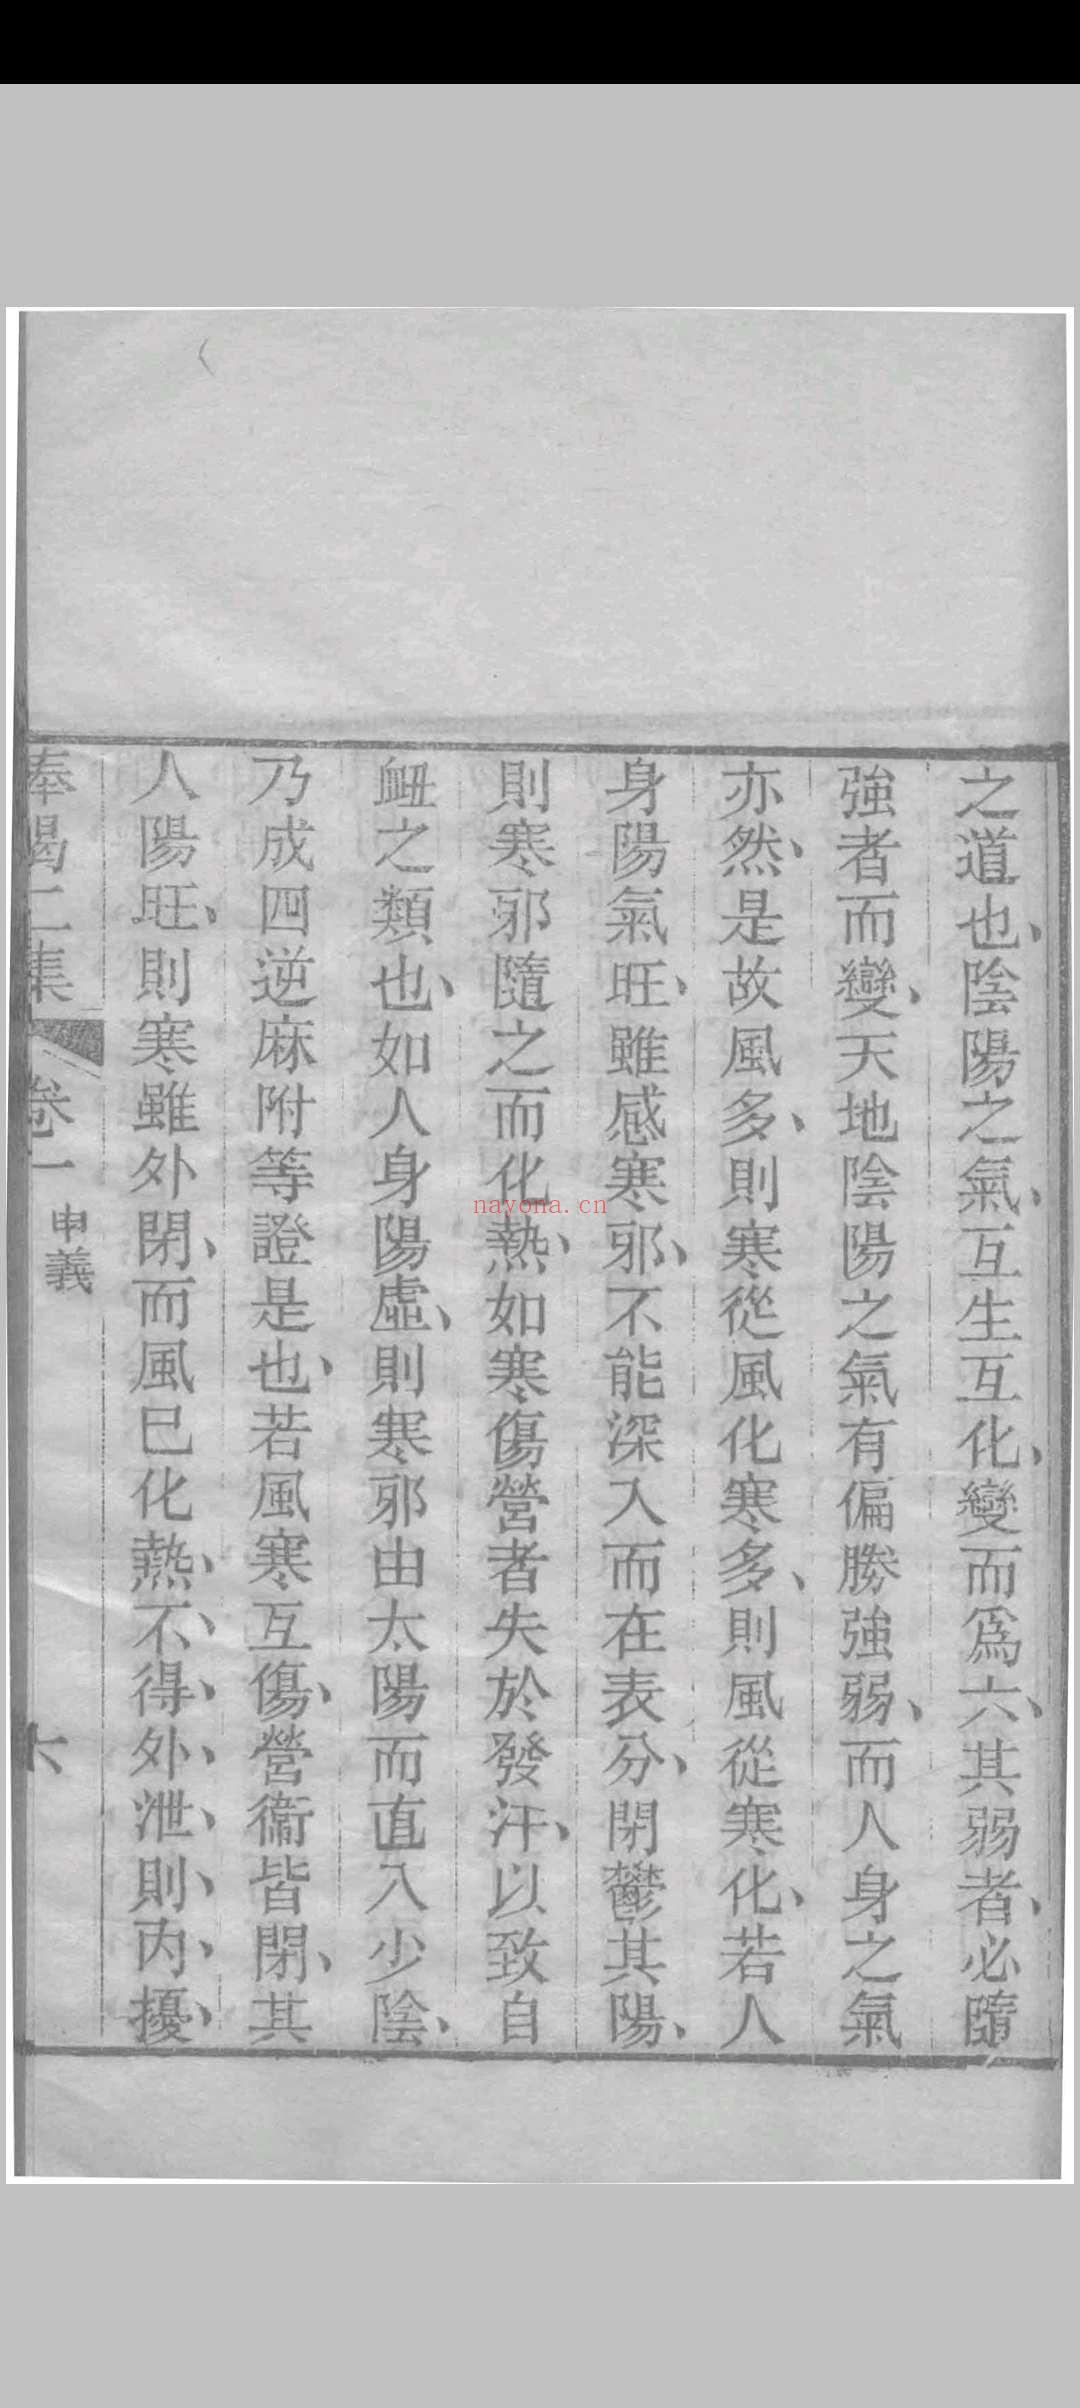 之道也、陰陽之氣、互生互化、變而爲六、其弱者、必隨
強者而變、天地陰陽之氣有偏勝強弱、而人身之氣
亦然、是故風多、則寒從風化寒多、則風從寒化、若人
身陽氣旺、雖感寒邪、不能深入而在表分、閉鬱其陽、
則寒邪隨之而化熱、如寒傷營者失於發汗、以致自
衄之類也、如人身陽虛、則寒邪由太陽而直入少陰、
乃成四逆麻附等證是也、若風寒互傷、營衞皆閉、其
人陽旺、則寒雖外閉、而風已化熱、不、得、外、泄、則、內、擾、
卷一 申義 六
nayona.cn